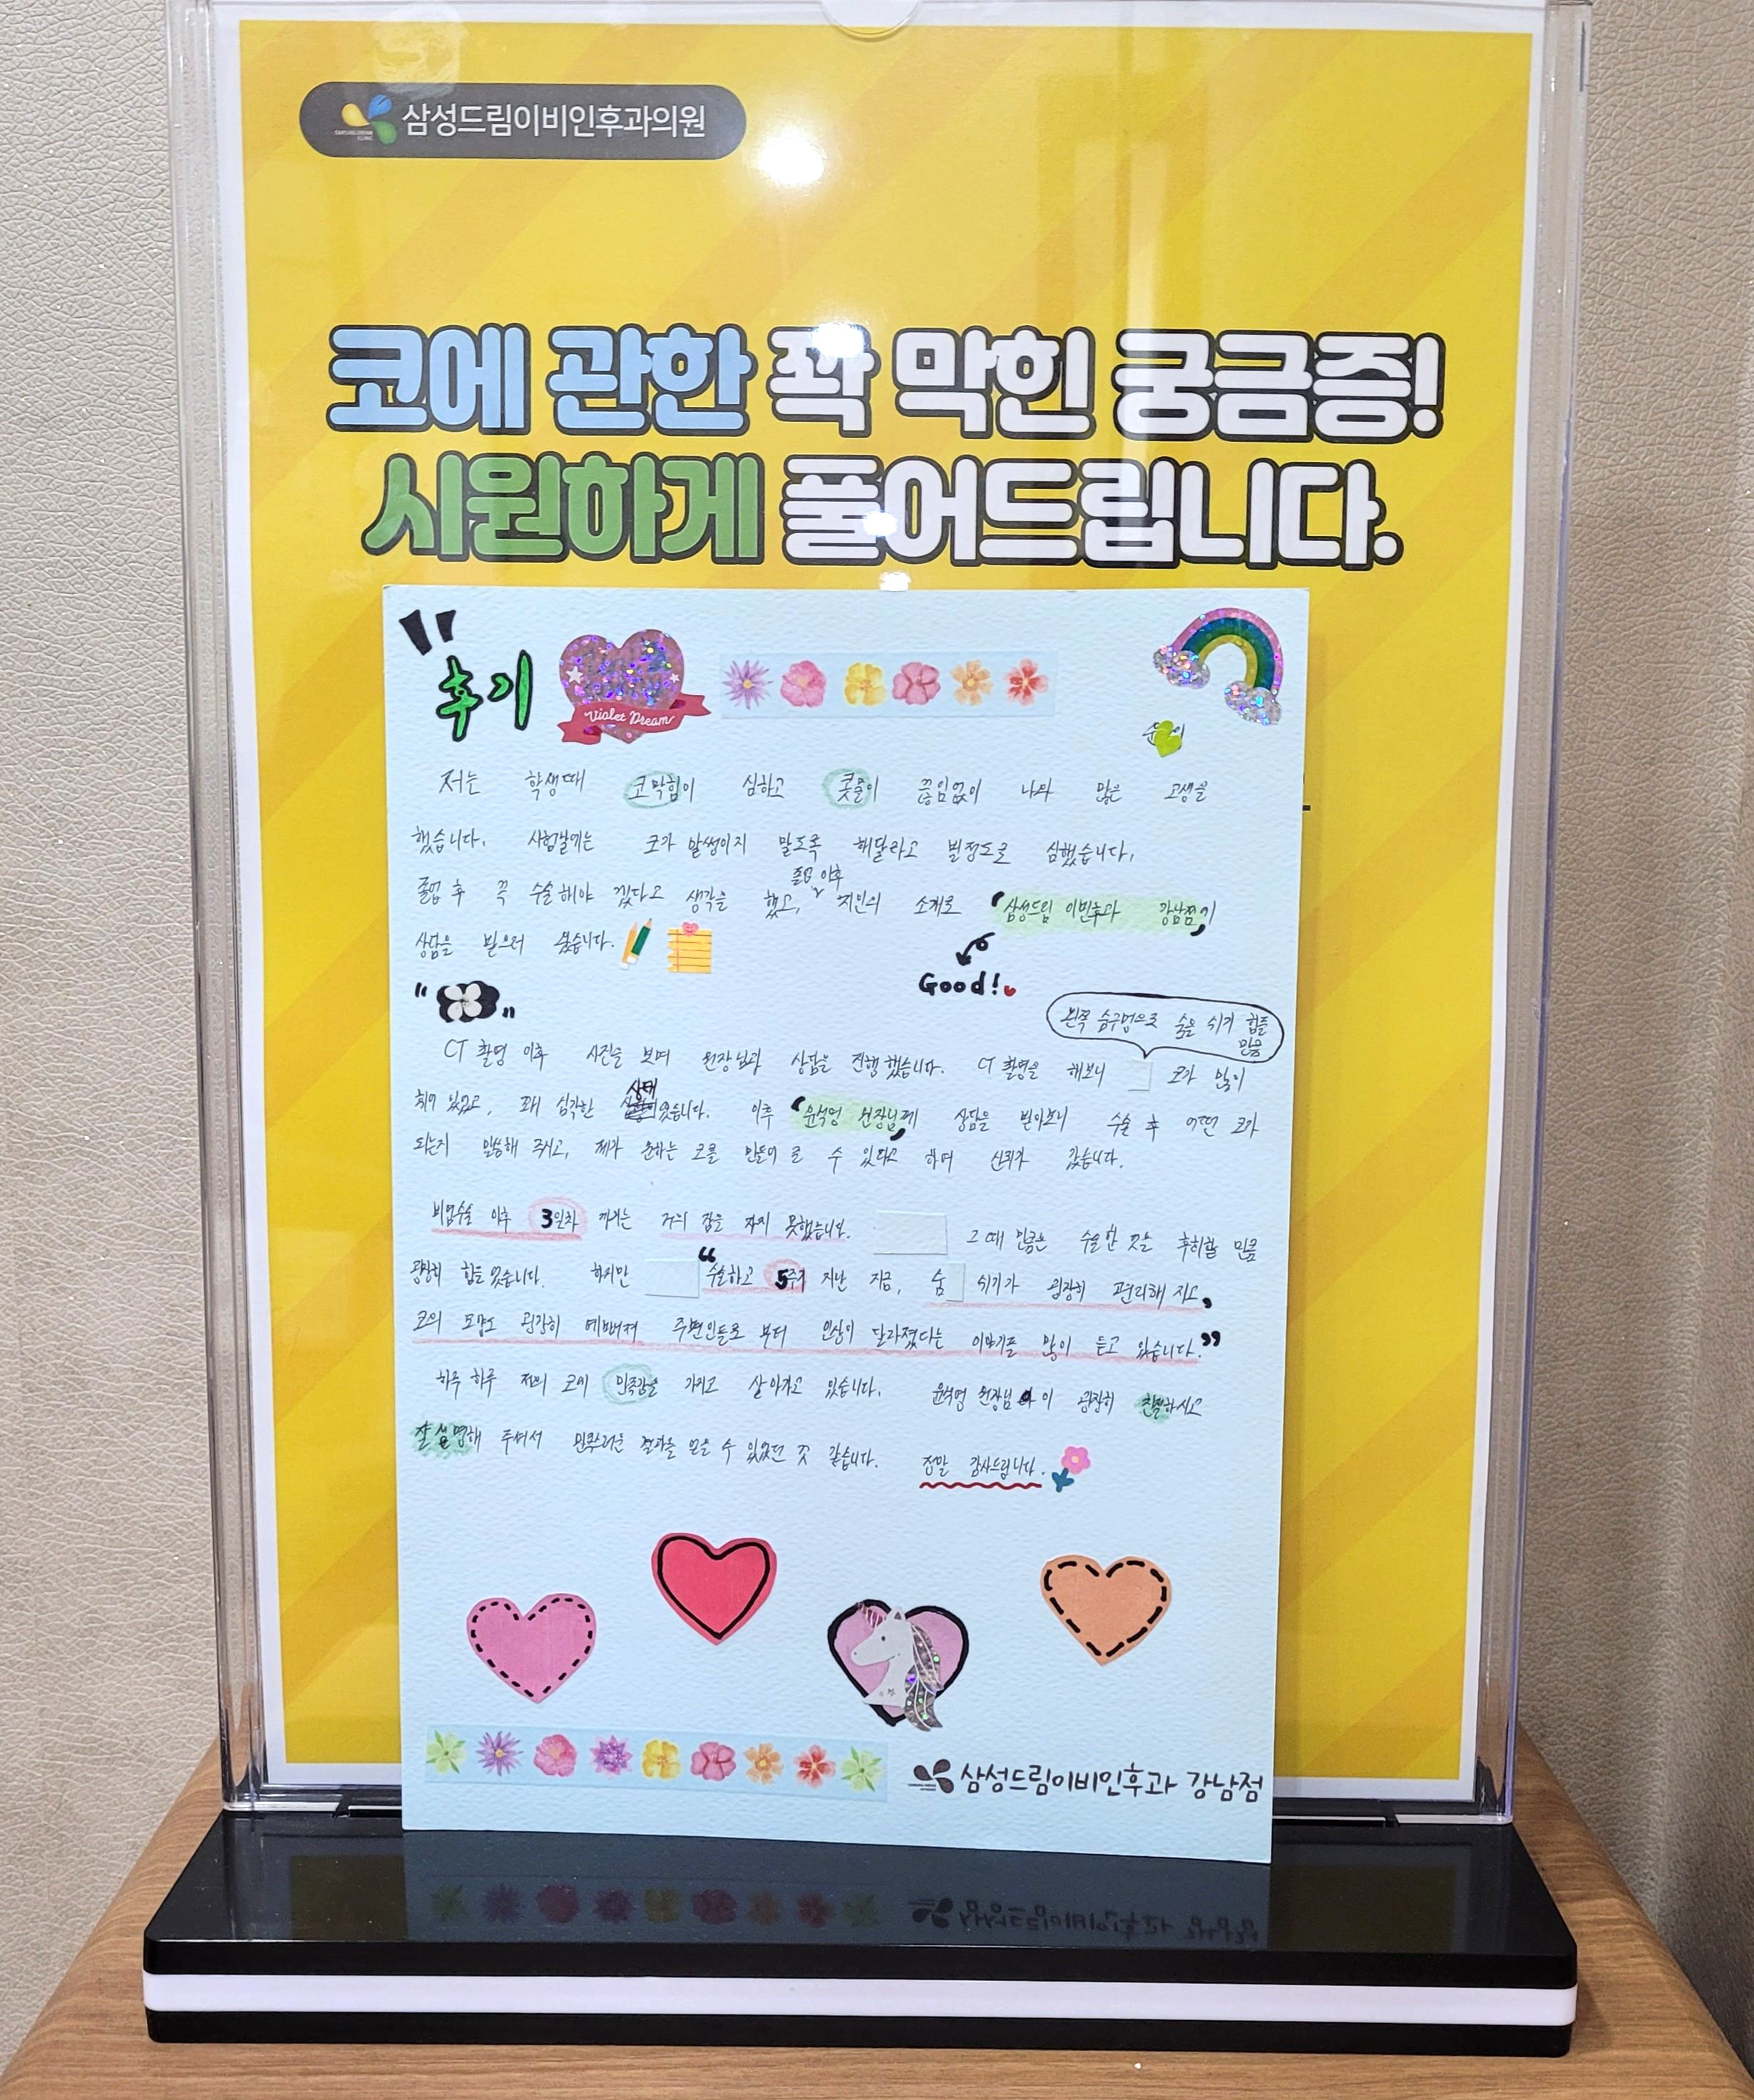 삼성드림이비인후과의원
코에 관한 꽉 막힌 궁금증!
시원하게 풀어드립니다.
"후기
Violet Dream
저는 학생때 코막힘이 심하고 콧물이 끊임없이 나와 많은 고생을
했습니다. 시험날에는 코가 말썽이지 말도록 해달라고 빌정도로 심했습니다.
졸업 이후
졸업 후 꼭 수술해야 겠다고 생각을 했고, 지인의 소개로 '삼성드림 이비인후과 강남점'
상담을 받으러 왔습니다.
Good!
왼쪽 숨구멍으로 숨을 쉬기 힘들
만큼
CT 촬영 이후 사진을 보며 원장님과 상담을 진행했습니다. CT 촬영을 해보니 코가 많이
상태
휘어 있었고, 꽤 심각한 였습니다. 이후 '윤석영 원장님'께 상담을 받아보니 수술 후 어떤 코가
되는지 말씀해 주시고, 제가 원하는 코를 만들어 줄 수 있다고 하여 신뢰가 갔습니다.
비염수술 이후 3일차 까지는 거의 잠을 자지 못했습니다. 그 때 만큼은 수술한 것을 후회할 만큼
굉장히 힘들었습니다. 하지만 "수술하고 5주가 지난 지금, 숨 쉬기가 굉장히 편리해 지고,
코의 모양도 굉장히 예뻐져 주변인들로 부터 인상이 달라졌다는 이야기를 많이 듣고 있습니다."
하루 하루 저의 코에 만족감을 가지고 살아가고 있습니다. 윤석영 원장님이 굉장히 친절하시고
잘 설명해 주셔서 만족스러운 결과를 얻을 수 있었던 것 같습니다. 정말 감사드립니다.
삼성드림이비인후과 강남점